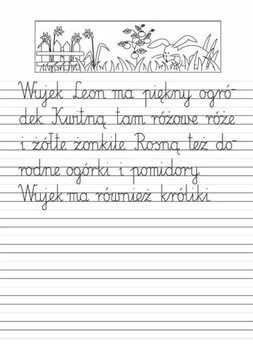 Wujek Leon ma piękny ogró-
dek Kwitną tam różowe róże
i żółte żonkile Rosną też do-
rodne ogórki i pomidory
Wujek ma również króliki